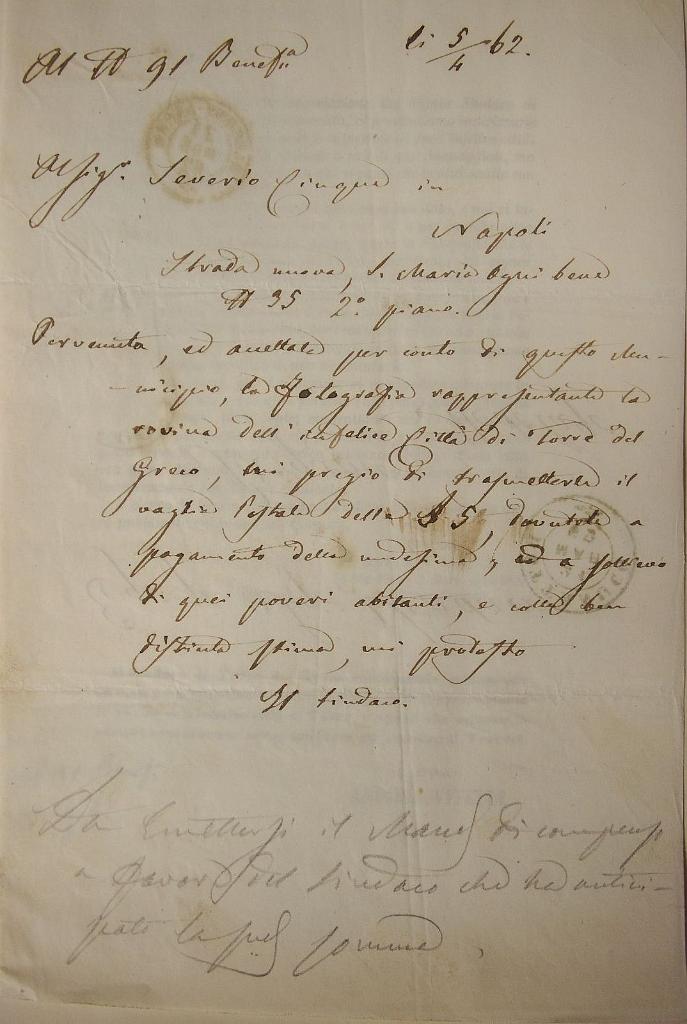 Al N 91 Benefa
li 5/4 62.
Al Sigr. Severio Cinque in
Napoli
Strada nuova, S. Maria Ogni bene
N 35 2º piano.
Pervenuta, ed accettata per conto di questo Mu-
-nicipio, la fotografia rappresentante la
rovina dell'infelice Città di Torre del
Greco, mi pregio di trasmetterle il
vaglia Postale delle 5, dovutole a
pagamento della medesima, ed a sollievo
di quei poveri abitanti, e colla ben
distinta stima, mi protesto
Il Sindaco.
Da Emettersi il Mand di compenso
a favore del Sindaco che ha antici-
pato la sud somma,